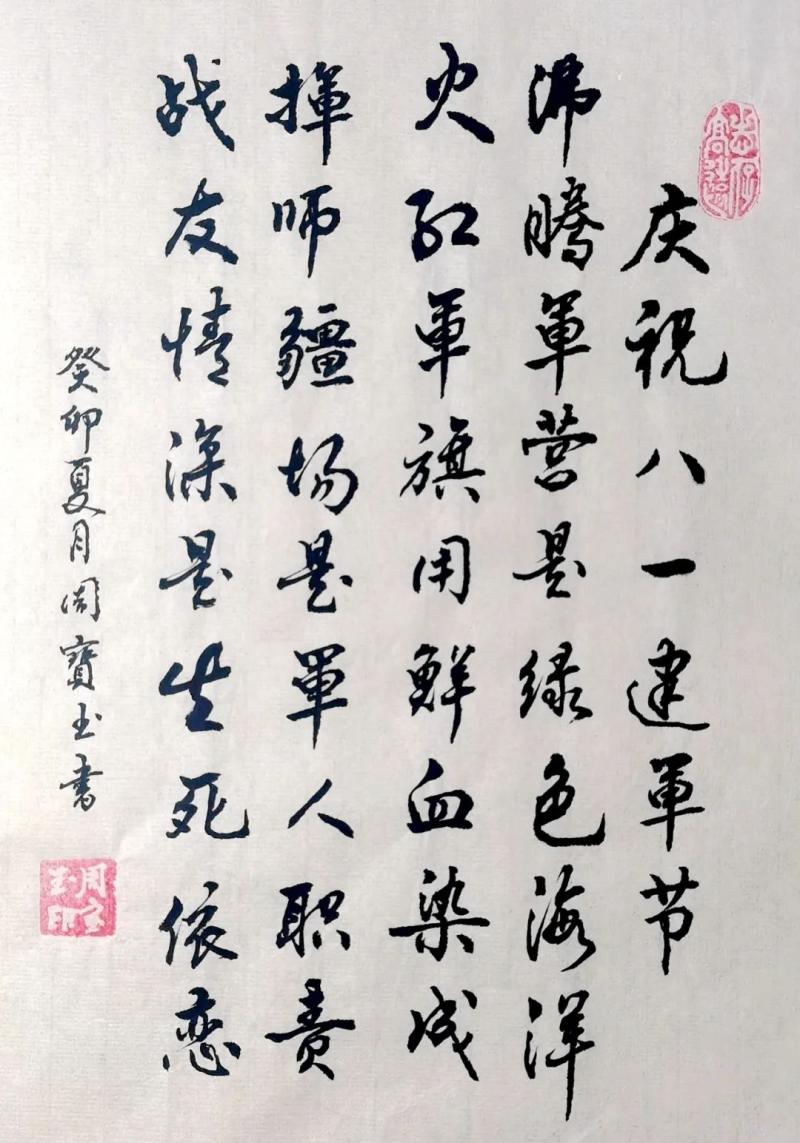 庆祝八一建軍节
沸騰軍营是绿色海洋
火红軍旗用鮮血染成
揮师疆场是軍人职责
战友情深是生死依恋
癸卯夏月周寶玉书
周宝玉印